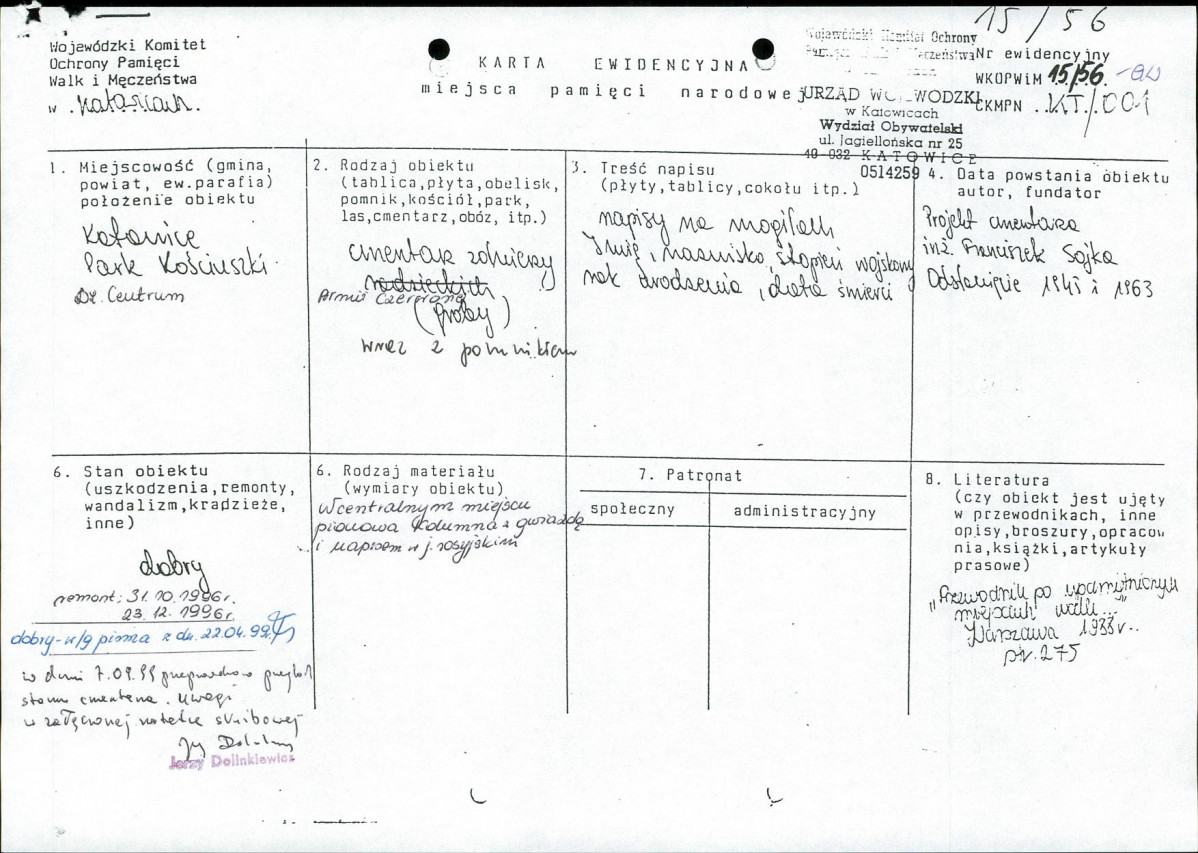 15/56
Wojewódzki Komitet
Ochrony Pamięci
Walk i Męczeństwa
w Katowicach.
KARTA EWIDENCYJNA
miejsca pamięci narodowej
Wojewódzki Komitet Ochrony
Pamięci Walk i Męczeństwa
URZĄD WOJEWÓDZKI
w Katowicach
Wydział Obywatelski
ul. Jagiellońska nr 25
40-032 KATOWICE
0514259
Nr ewidencyjny
WKOPWiM 15/56
CKMPN ..KT/001
1. Miejscowość (gmina,
powiat, ew.parafia)
położenie obiektu
Katowice
Park Kościuszki
Dz. Centrum
2. Rodzaj obiektu
(tablica,płyta,obelisk,
pomnik,kościół,park,
las,cmentarz,obóz, itp.)
cmentarz żołnierzy
radzieckich
Armii Czerwonej
(groby)
wraz z pomnikiem
3. Treść napisu
(płyty,tablicy,cokołu itp.)
napisy na mogiłach
Imię, nazwisko, stopień wojskowy
rok urodzenia, data śmierci
4. Data powstania obiektu
autor, fundator
Projekt cmentarza
inż. Franciszek Sojka
Odsłonięcie 1945 i 1963
6. Stan obiektu
(uszkodzenia,remonty,
wandalizm,kradzieże,
inne)
dobry
remont: 31.10.1996r.
23.12.1996r.
dobry - w/g pisma z dn. 22.04.99
w dniu 7.09.99 przeprowadzono przegląd
stanu cmentarza. Uwagi
w załączonej notatce służbowej
Jerzy Dolinkiewicz
6. Rodzaj materiału
(wymiary obiektu)
W centralnym miejscu
pionowa kolumna z gwiazdą
i napisem w j. rosyjskim
7. Patronat
społeczny
administracyjny
8. Literatura
(czy obiekt jest ujęty
w przewodnikach, inne
opisy,broszury,opracow
nia,książki,artykuły
prasowe)
"Przewodnik po upamiętnionych
miejscach walk..."
Warszawa 1988 r..
str. 275